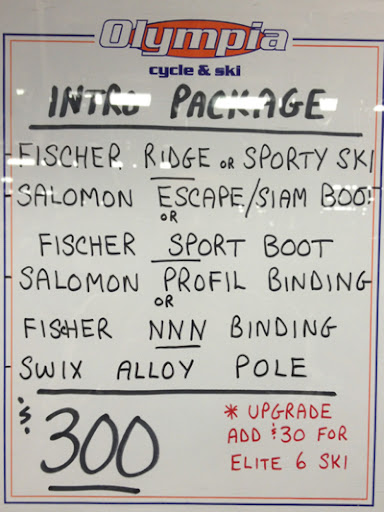 Olympia
cycle & ski
INTRO PACKAGE
- FISCHER RIDGE OR SPORTY SKI
- SALOMON ESCAPE/SIAM BOOT
OR
FISCHER SPORT BOOT
- SALOMON PROFIL BINDING
OR
FISCHER NNN BINDING
- SWIX ALLOY POLE
$300
* UPGRADE
ADD $30 FOR
ELITE 6 SKI